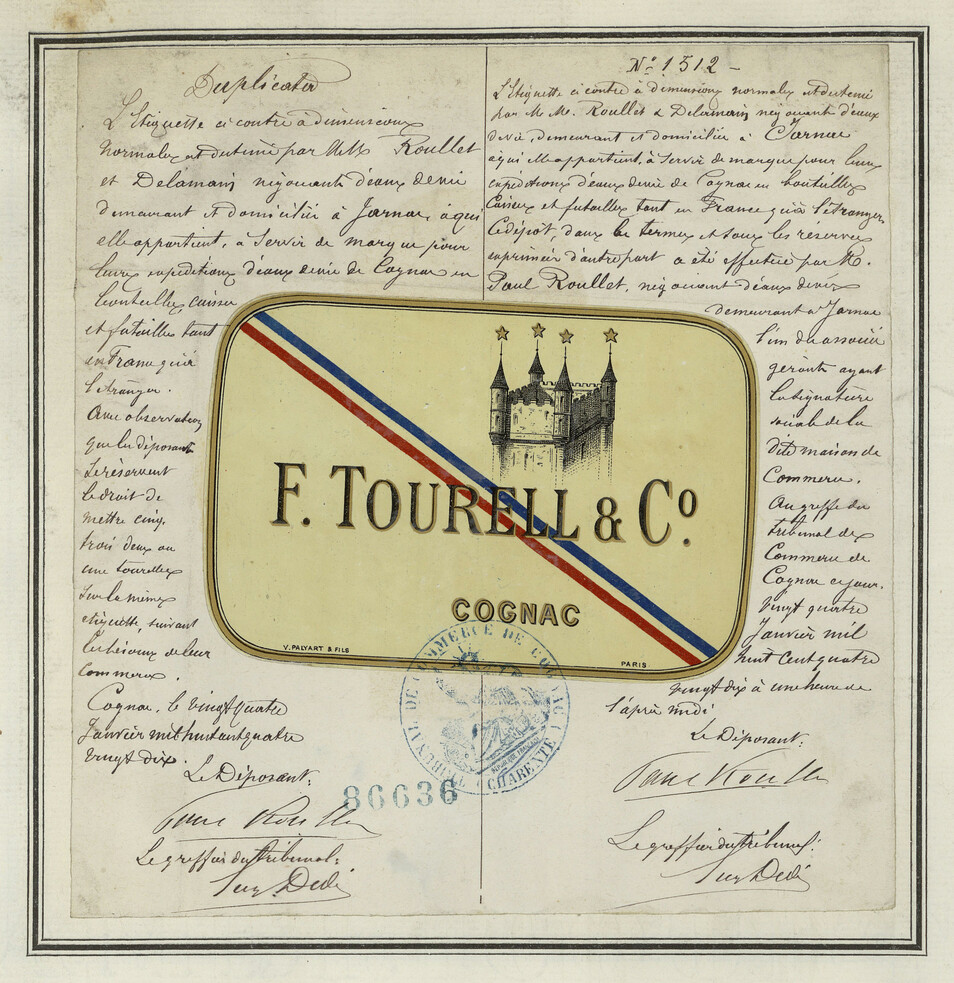 Duplicata
L'Etiquette ci contre à dimensions
normales est destinée par MM Roullet
et Delamain négociants d'eaux de vie
demeurant et domiciliés à Jarnac, à qui
elle appartient, à servir de marque pour
leurs expéditions d'eaux de vie de Cognac en
bouteilles, caisses
et futailles tant
en France qu'à
l'étranger.
Avec observation
que les déposants
se réservent
le droit de
mettre cinq,
trois deux ou
une tourelles
sur la même
étiquette, suivant
les besoins de leur
commerce.
Cognac, le vingt quatre
Janvier mil huit cent quatre
vingt dix.
Le Déposant:
Paul Roullet
Le greffier du tribunal:
N° 1512 -
L'Etiquette ci contre à dimensions normales est destinée
par M.M. Roullet & Delamain négociants d'eaux
de vie, demeurant et domiciliés à Jarnac
à qui elle appartient, à servir de marque pour leurs
expéditions d'eaux de vie de Cognac en bouteilles
caisses et futailles tant en France qu'à l'étranger
Ce dépôt, dans les termes et sous les réserves
exprimées d'autre part a été effectué par M.
Paul Roullet, négociant d'eaux de vie
demeurant à Jarnac
l'un des associés
gérants ayant
la signature
sociale de la
dite maison de
Commerce.
Au greffe du
tribunal de
Commerce de
Cognac ce jour.
Vingt quatre
Janvier mil
huit cent quatre
vingt dix à une heure de
l'après midi
Le Déposant:
Paul Roullet
Le greffier du tribunal:
F. TOURELL & Cº.
COGNAC
V. PALYART & FILS
PARIS
TRIBUNAL DE COMMERCE DE COGNAC
(CHARENTE)
RÉPUBLIQUE FRANÇAISE
86636